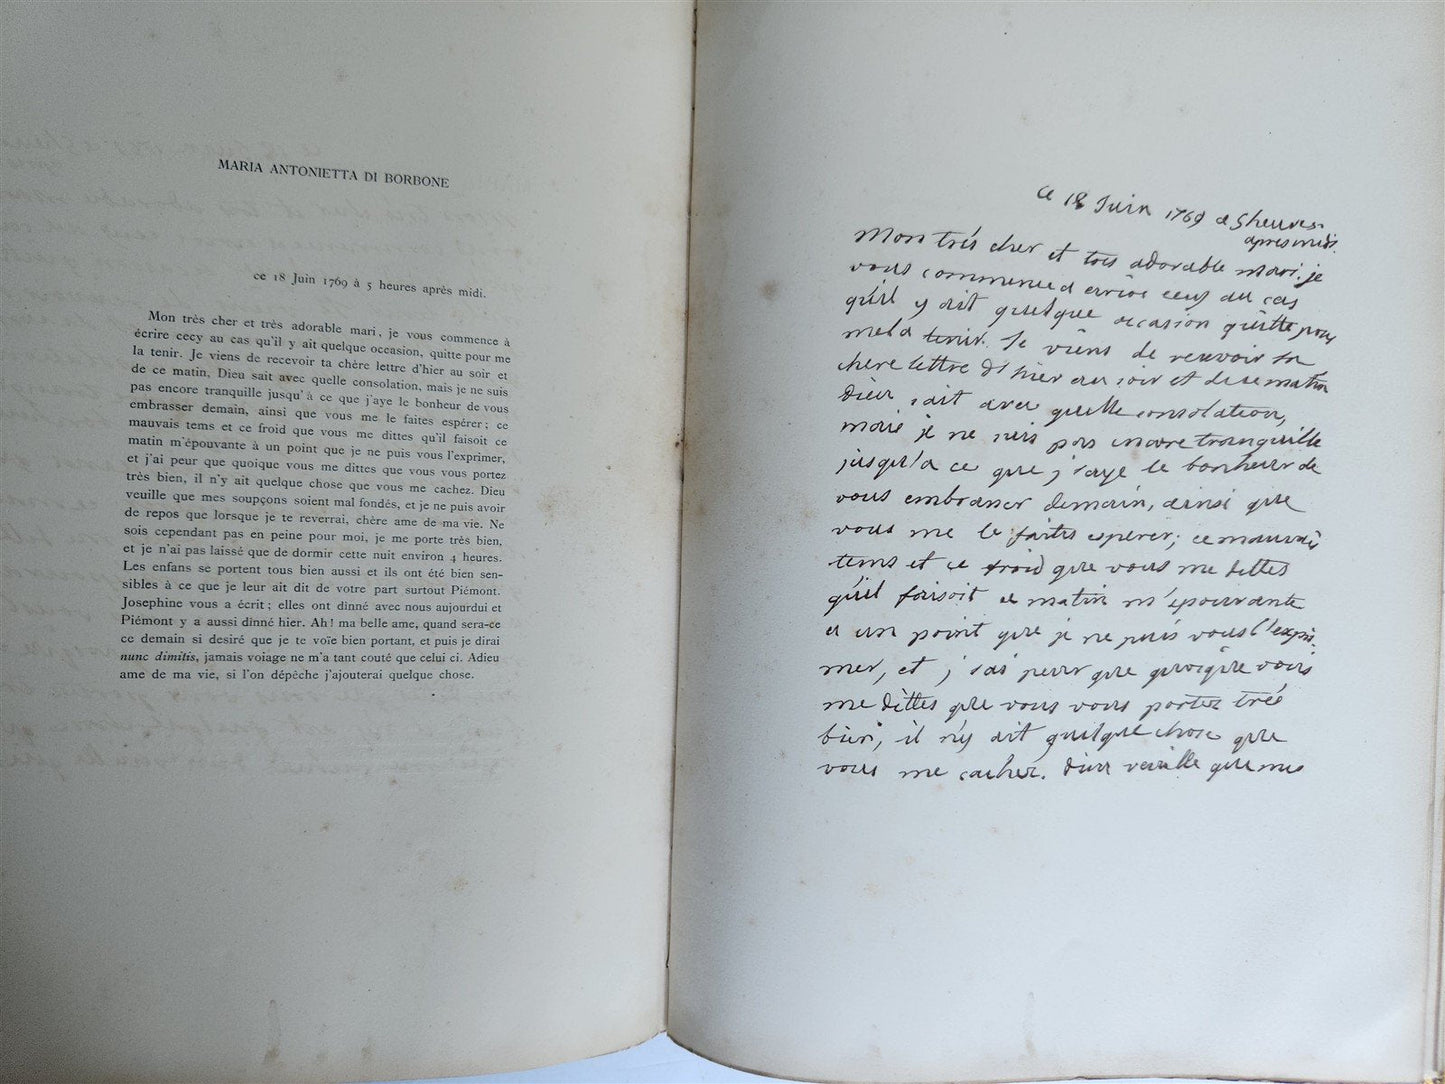 MARIA ANTONIETTA DI BORBONE
ce 18 Juin 1769 à 5 heures après midi.
Mon très cher et très adorable mari, je vous commence à
écrire cecy au cas qu'il y ait quelque occasion, quitte pour me
la tenir. Je viens de recevoir ta chère lettre d'hier au soir et
de ce matin, Dieu sait avec quelle consolation, mais je ne suis
pas encore tranquille jusqu'à ce que j'aye le bonheur de vous
embrasser demain, ainsi que vous me le faites espérer; ce
mauvais tems et ce froid que vous me dittes qu'il faisoit ce
matin m'épouvante à un point que je ne puis vous l'exprimer,
et j'ai peur que quoique vous me dittes que vous vous portez
très bien, il n'y ait quelque chose que vous me cachez. Dieu
veuille que mes soupçons soient mal fondés, et je ne puis avoir
de repos que lorsque je te reverrai, chère ame de ma vie. Ne
sois cependant pas en peine pour moi, je me porte très bien,
et je n'ai pas laissé que de dormir cette nuit environ 4 heures.
Les enfans se portent tous bien aussi et ils ont été bien sen-
sibles à ce que je leur ait dit de votre part surtout Piémont.
Josephine vous a écrit; elles ont dinné avec nous aujourdui et
Piémont y a aussi dinné hier. Ah! ma belle ame, quand sera-ce
ce demain si desiré que je te voïe bien portant, et puis je dirai
nunc dimitis, jamais voiage ne m'a tant couté que celui ci. Adieu
ame de ma vie, si l'on dépêche j'ajouterai quelque chose.
ce 18 Juin 1769 a 5 heures
apres midi.
Mon trés cher et trés adorable mari, je
vous commence a ecrire cecy au cas
qu'il y ait quelque occasion quitte pour
me la tenir. Je viens de recevoir ta
chere lettre d'hier au soir et de ce matin
dieu sait avec quelle consolation,
mais je ne suis pas encore tranquille
jusqu'a ce que j'aye le bonheur de
vous embrasser demain, ainsi que
vous me le faites esperer; ce mauvais
tems et ce froid que vous me dittes
qu'il faisoit ce matin m'epouvante
a un point que je ne puis vous l'expri-
mer, et j'ai peur que quoique vous
me dittes que vous vous portez trés
bien, il n'y ait quelque chose que
vous me cachez. Dieu veuille que mes